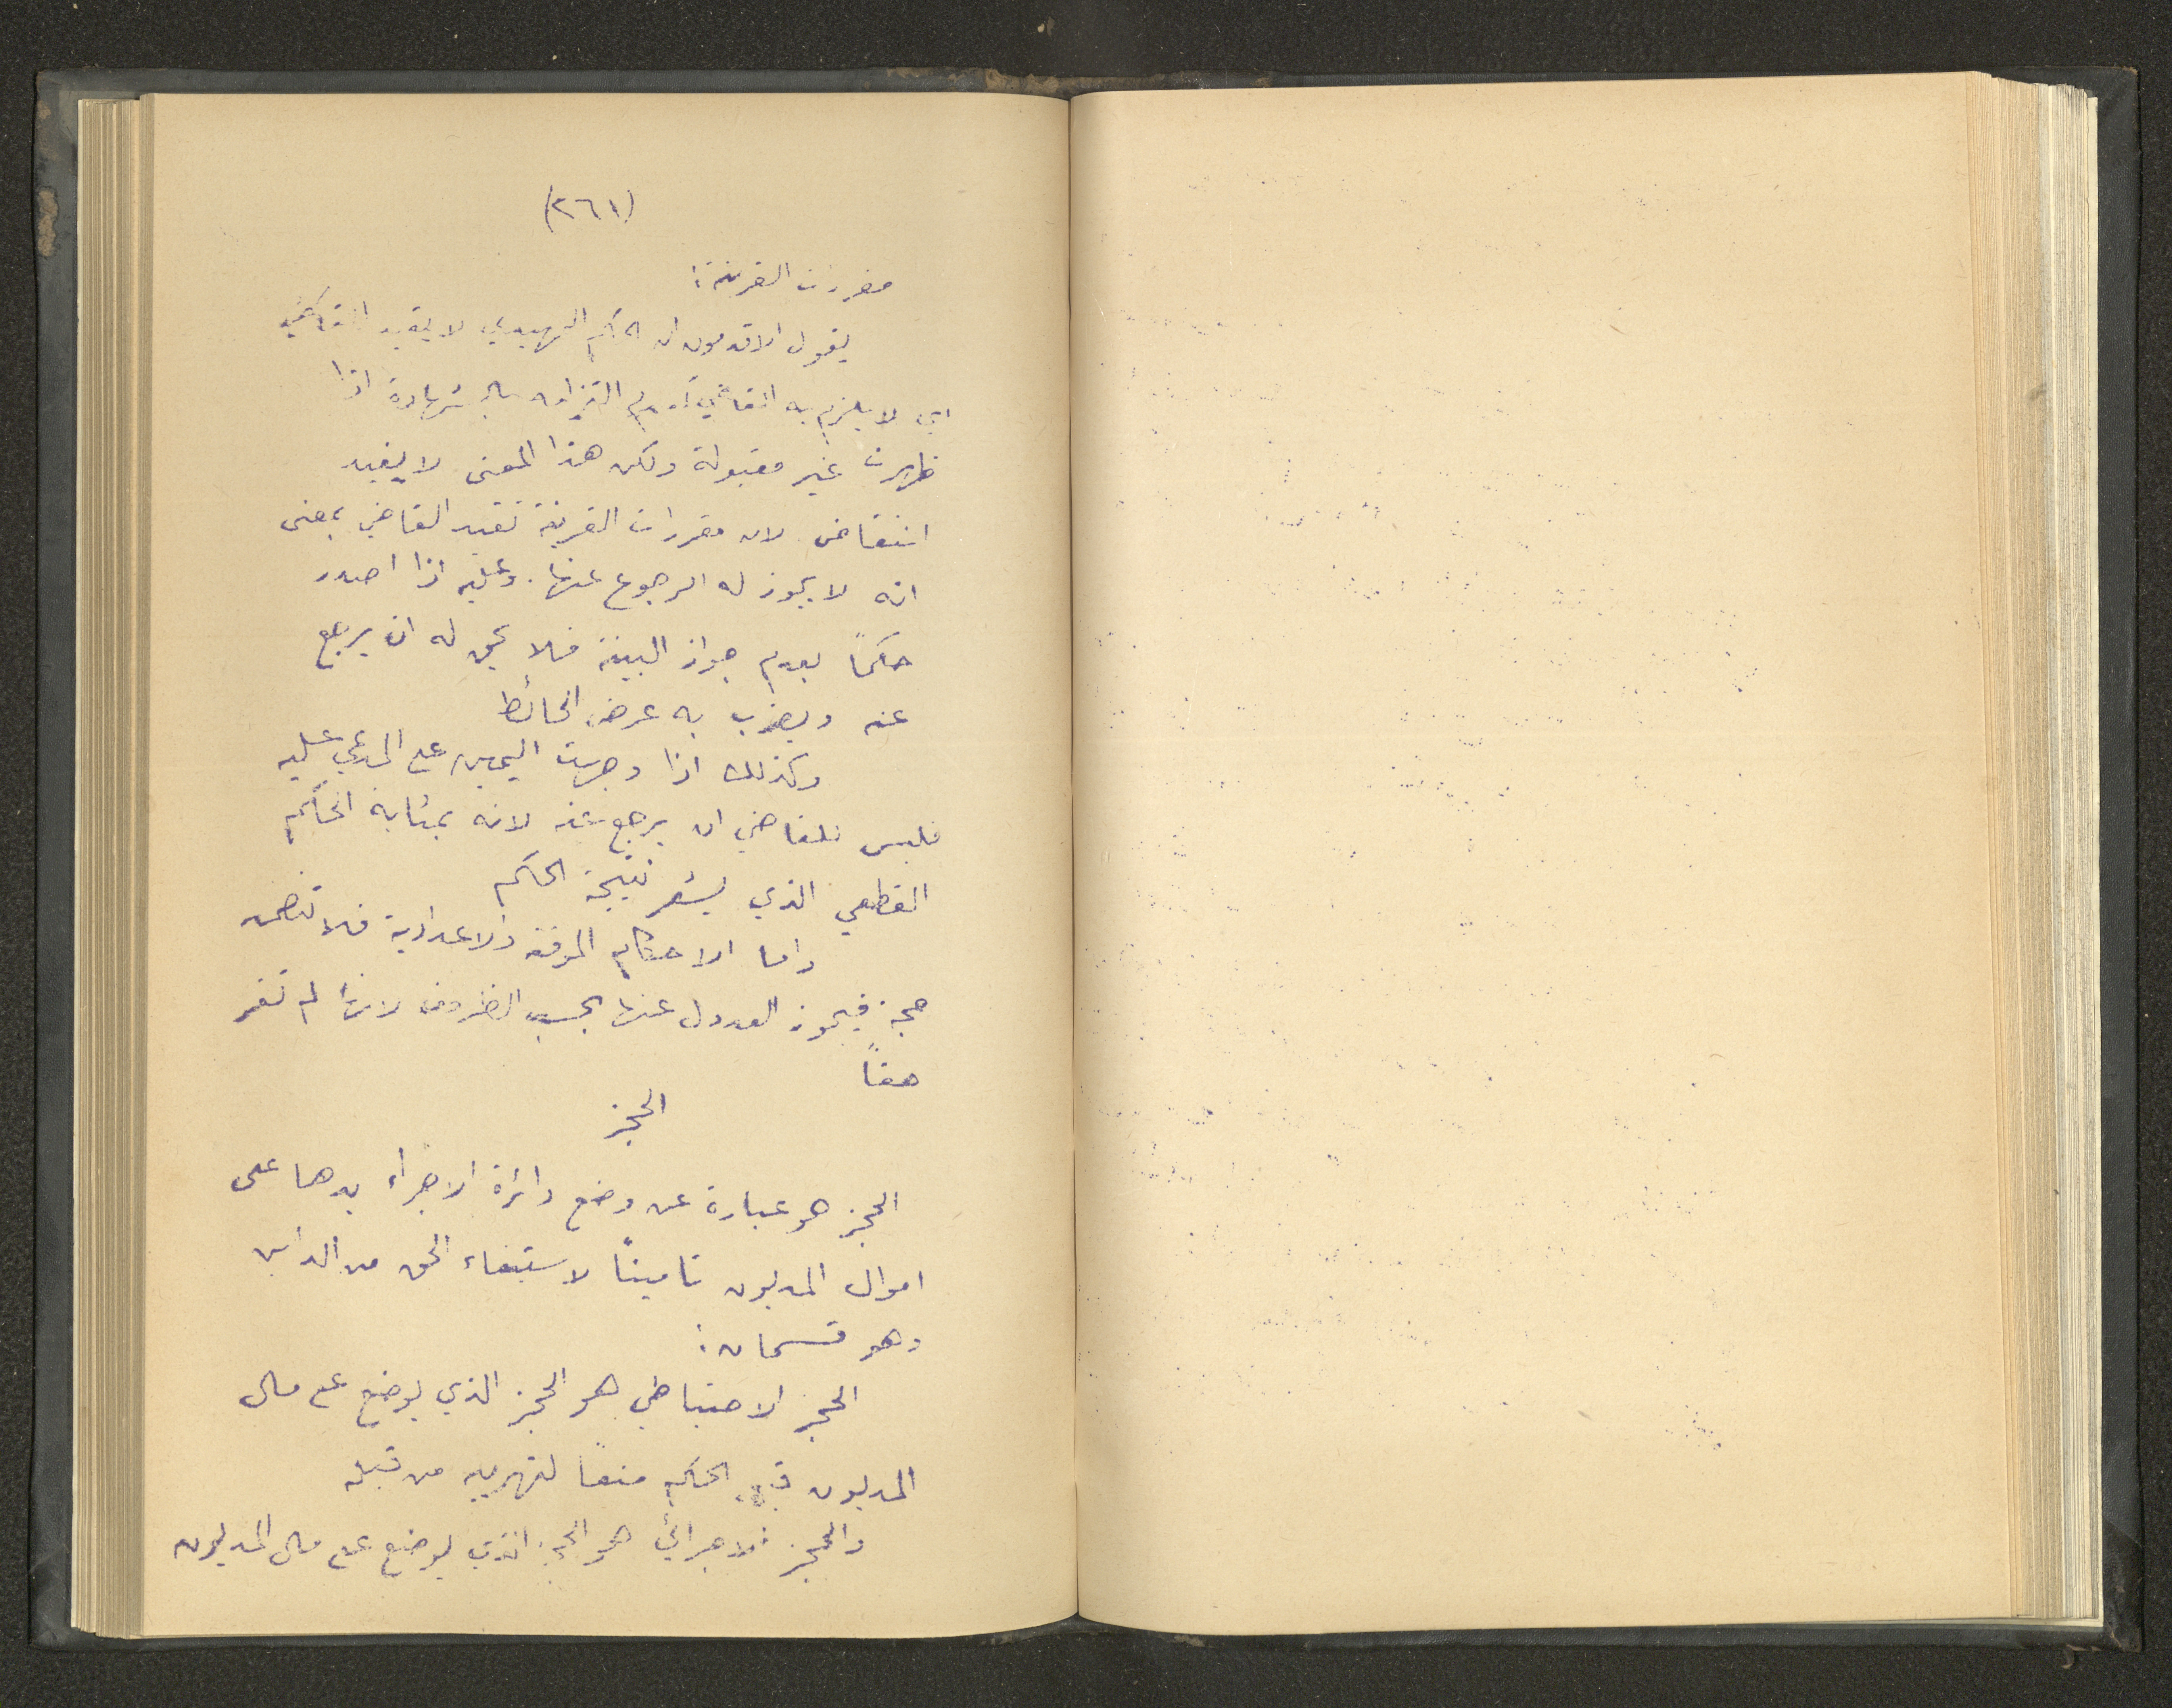 (٢٦١)
مقررات القرينة:
يقول الاقدمون ان الحكم التمهيدي لا يقيد القاضي
اي لا يلزم به القاضي لعدم التزامه بالشهادة اذا
ظهرت غير مقبولة ولكن هذا المعنى لا يفيد
انتقاض لان مقررات القرينة تقيد القاضي بمعنى
انه لا يجوز له الرجوع عنها. وعليه اذا اصدر
حكماً بعدم جواز البينة فلا يحق له ان يرجع
عنه ويضرب به عرض الحائط
وكذلك اذا وجهت اليمين على المدعي عليه
فليس للقاضي ان يرجع عنه لانه بمثابة الحكم
القطعي الذي يشعر نتيجة الحكم
واما الاحكام المؤقتة والاعدادية فلا تتضمن
حجة فيجوز العدول عنها بحسب الظروف لانها لم تقر
حقاً
الحجز
الحجز هو عبارة عن وضع دائرة الاجراء يدها على
اموال المديون تاميناً لاستيفاء الحق من الدائن
وهو قسمان:
الحجز الاحتياطي هو الحجز الذي يوضع على مال
المديون قبل الحكم منعاً لتهريبه من قبله
والحجز الاجرائي هو الحجز الذي يوضع على مال المديون